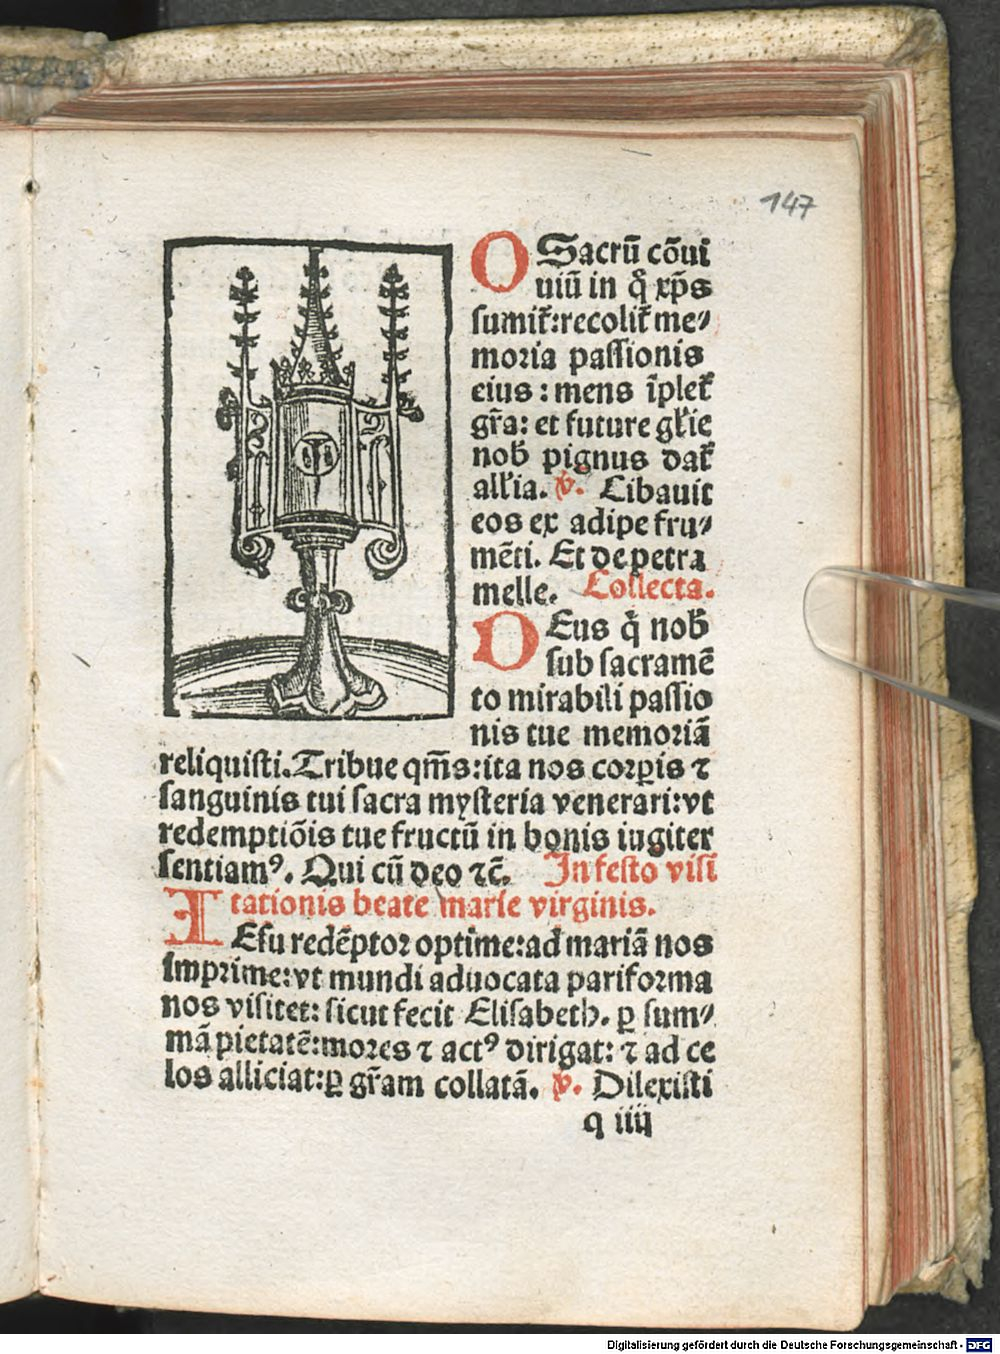 147
O Sacrū cōui
uiū in q̊ xp̄s
sumit᷑:recolit᷑ me⸗
moria passionis
eius : mens īplet᷑
gr̄a: et future gl̄ie
nob̄ pignus dat᷑
all̄ia. ℣. Cibauit
eos ex adipe fru⸗
mēti. Et de petra
melle. Collecta.
DEus q̊ nob̄
sub sacramē
to mirabili passio
nis tue memoriā
reliquisti. Tribue qm̄s:ita nos corꝑis ⁊
sanguinis tui sacra mysteria venerari:vt
redemptiōis tue fructū in bonis iugiter
sentiamꝰ. Qui cū deo ⁊c̄. In festo visi
tationis beate marie virginis.
IEsu redēptor optime:ad mariā nos
imprime:vt mundi aduocata pariforma
nos visitet: sicut fecit Elisabeth. ꝑ sum⸗
mā pietatē:mores ⁊ actꝰ dirigat: ⁊ ad ce
los alliciat:ꝑ gr̄am collatā. ℣. Dilexisti
q iiij
Digitalisierung gefördert durch die Deutsche Forschungsgemeinschaft - DFG